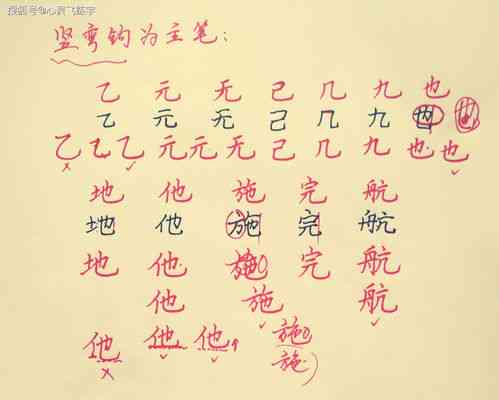 搜狐号@心舞飞练字
竖弯钩为主笔：
乙 元 无 己 几 九 也
乙 元 无 己 几 九 也 也
乙 乙 乙 元 元 无 己 几 九 也 也
地 他 施 完 航
地 他 施 完 航
地 他 施 完 航
他 施 航
他 他 他 施
施